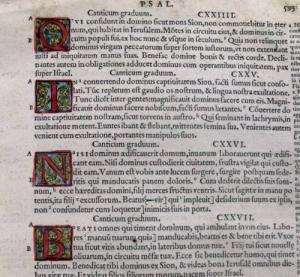 PSAL.
Canticum graduum. CXXIIII.
QVI confidunt in domino sicut mons Sion, non commouebitur in æternum, qui habitat in Ierusalem. Mótes in circuitu eius, & dominus in circuitu populi sui, ex hoc nunc & vsque in seculum. Quia non relinquet
dominus virgam peccatorum super sortem iustorum, vt non extendant
iusti ad iniquitatem manus suas. Benefac domine bonis & rectis corde. Declinantes autem in obligationes adducet dominus cum operantibus iniquitatem, pax
super Israel.
Canticum graduum. CXXV.
IN conuertendo dominus captiuitatem Sion, facti sumus sicut consolati. Túc repletum est gaudio os nostrum, & lingua nostra exultatione.
Tunc dicét inter gentes magnificauit dominus facere cum eis. Magnificauit dominus facere nobiscum, facti sumus lætantes. Conuerte domine captiuitatem nostram, sicut torrens in austro. Qui seminant in lachrymis, in
exultatione metent. Euntes ibant & flebant, mittentes semina sua. Venientes autem
venient cum exultatione, portantes manipulos suos.
Canticum graduum. CXXVI.
NISI dominus ædificauerit domum, inuanum laborauerunt qui ædificant eam. Nisi dominus custodierit ciuitatem, frustra vigilat qui custodit eam. Vanum est vobis ante lucem surgere, surgite postquam sederitis qui manducatis panem doloris. Cum dederit dilectis suis somnum,
ecce hæreditas domini, filij merces fructus ventris. Sicut sagittæ in manu potentis, ita filij excussorum. Beatus vir qui impleuit desiderium suum ex ipsis,
non confundetur cum loquetur inimicis suis in porta.
Canticum graduum. CXXVII.
BEATI omnes qui timent dominum, qui ambulant in viis eius. Labores manuum tuarum quia manducabis, beatus es & bene tibi erit. Vxor
tua sicut vitis abundans, in lateribus domus tuæ. Filij tui sicut nouellæ
oliuarum, in circuitu mensæ tuæ. Ecce sic benedicetur homo, qui timet